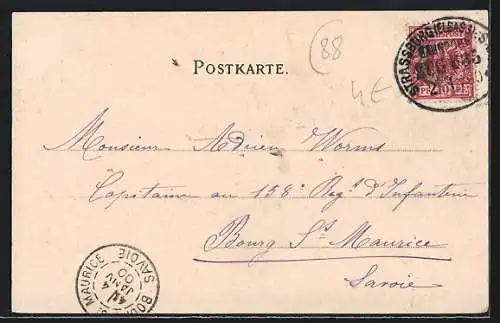 88
STRASSBURG (ELSASS)
BAHNPOST
ZUG 685
POSTKARTE.
4€
Monsieur Adrien Worms
Capitaine au 158e Regt d'Infanterie
Bourg St Maurice
Savoie
BOURG St MAURICE
4
JANV
00
SAVOIE